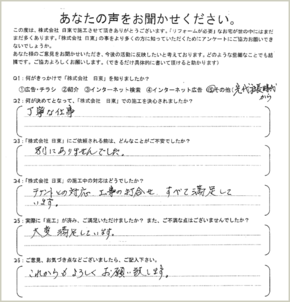 あなたの声をお聞かせください。
この度は、株式会社 日東で施工させて頂きありがとうございます。「リフォームが必要」なお宅が世の中にはまだ
まだ多くあります。「株式会社 日東」の事をより多くの方に知っていただくためにアンケートにご協力お願いでき
ないでしょうか。
あなた様のご意見をお聞かせいただき、今後の活動に反映したいと考えております。どのような些細なことでも結
構です。ご協力よろしくお願いします。（できるだけ具体的に書いて頂けると助かります）
Q1：何がきっかけで「株式会社 日東」を知りましたか？
①広告・チラシ ②紹介 ③インターネット検索 ④インターネット広告 ⑤その他(先代社長時代
から
Q2：何が決めてとなって、「株式会社 日東」での施工を決心されましたか？
丁寧な仕事
Q3：「株式会社 日東」にご依頼される際は、どんなことがご不安でしたか？
別にありませんでした。
Q4：「株式会社 日東」の施工中の対応はどうでしたか？
テナントとの対応 工事の打合せ すべて満足して
います。
Q5：実際に「施工」が済み、ご満足いただけましたか？また、ご不満な点はございませんでしたか？
大変満足しています。
Q6：ご意見、お気づき点などございましたら、ご記入下さい。
これからもよろしくお願い致します。